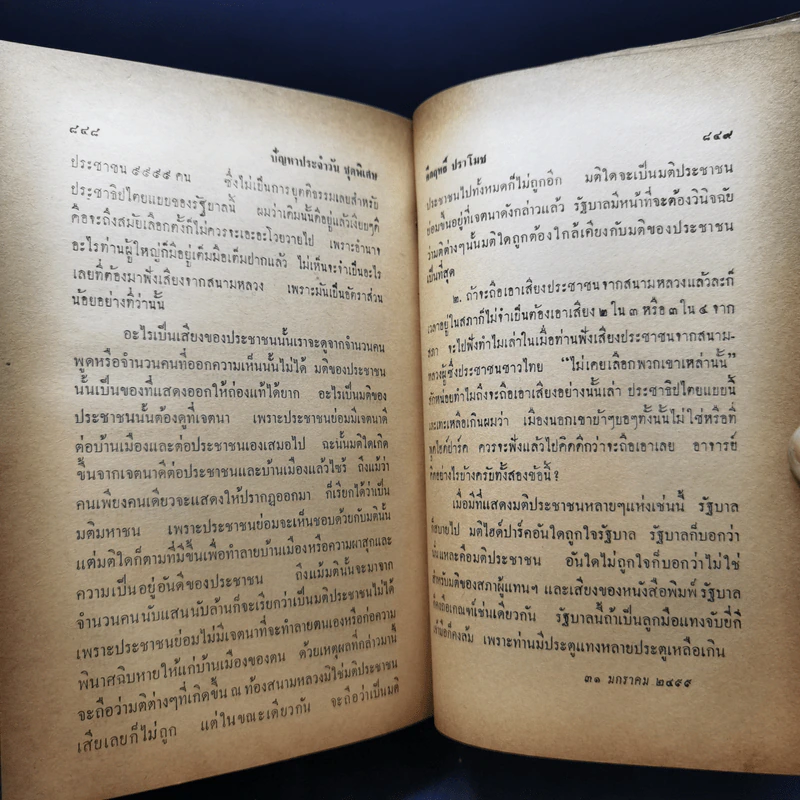 ๘๔๘
ปัญหาประจำวัน ชุดพิเศษ
ประชาชน ๙๙๙๙ คน ซึ่งไม่เป็นการยุตติธรรมเลยสำหรับ
ประชาธิปไตยแบบของรัฐบาลนี้ ผมว่าเดิมนั้นดีอยู่แล้วเงียบๆดี
คือจะถึงสมัยเลือกตั้งก็ไม่ควรจะเอะอะโวยวายไป เพราะอำนาจ
อะไรท่านผู้ใหญ่ก็มีอยู่เต็มมือเต็มปากแล้ว ไม่เห็นจะจำเป็นอะไร
เลยที่ต้องมาฟังเสียงจากสนามหลวง เพราะมันเป็นอัตราส่วน
น้อยอย่างที่ว่านั้น
อะไรเป็นเสียงของประชาชนนั้นเราจะดูจากจำนวนคน
พูดหรือจำนวนคนที่ออกความเห็นนั้นไม่ได้ มติของประชาชน
นั้นเป็นของที่แสดงออกให้ถ่องแท้ได้ยาก อะไรเป็นมติของ
ประชาชนนั้นต้องดูที่เจตนา เพราะประชาชนย่อมมีเจตนาดี
ต่อบ้านเมืองและต่อประชาชนเองเสมอไป ฉะนั้นมติใดเกิด
ขึ้นจากเจตนาดีต่อประชาชนและบ้านเมืองแล้วไซร้ ถึงแม้ว่า
คนเพียงคนเดียวจะแสดงให้ปรากฏออกมา ก็เรียกได้ว่าเป็น
มติมหาชน เพราะประชาชนย่อมจะเห็นชอบด้วยกับมตินั้น
แต่มติใดก็ตามที่มีขึ้นเพื่อทำลายบ้านเมืองหรือความผาสุกและ
ความเป็นอยู่อันดีของประชาชน ถึงแม้มตินั้นจะมาจาก
จำนวนคนนับแสนนับล้านก็จะเรียกว่าเป็นมติประชาชนไม่ได้
เพราะประชาชนย่อมไม่มีเจตนาที่จะทำลายตนเองหรือก่อความ
พินาศฉิบหายให้แก่บ้านเมืองของตน ด้วยเหตุผลที่กล่าวมานี้
จะถือว่ามติต่างๆที่เกิดขึ้น ณ ท้องสนามหลวงมิใช่มติประชาชน
เสียเลยก็ไม่ถูก แต่ในขณะเดียวกัน จะถือว่าเป็นมติ
๘๔๙
คึกฤทธิ์ ปราโมช
ประชาชนไปทั้งหมดก็ไม่ถูกอีก มติใดจะเป็นมติประชาชน
ย่อมขึ้นอยู่ที่เจตนาดังกล่าวแล้ว รัฐบาลมีหน้าที่จะต้องวินิจฉัย
ว่ามติต่างๆนั้นมติใดถูกต้องใกล้เคียงกับมติของประชาชน
เป็นที่สุด
๒. ถ้าจะถือเอาเสียงประชาชนจากสนามหลวงแล้วละก็
เวลาอยู่ในสภาก็ไม่จำเป็นต้องเอาเสียง ๒ ใน ๓ หรือ ๓ ใน ๔ จาก
สภา จะไปฟังทำไมเล่าในเมื่อท่านฟังเสียงประชาชนจากสนาม-
หลวงผู้ซึ่งประชาชนชาวไทย “ไม่เคยเลือกพวกเขาเหล่านั้น”
สักหน่อยทำไมถึงจะถือเอาเสียงอย่างนั้นเล่า ประชาธิปไตยแบบนี้
เลอะเทะเหลือเกินผมว่า เมืองนอกเขาทำๆยอๆทั้งนั้นไม่ใช่หรือที่
พูดไฮด์ปาร์ค ควรจะฟังแล้วไปคิดดีกว่าจะถือเอาเลย อาจารย์
คิดอย่างไรบ้างครับทั้งสองข้อนี้ ?
เมื่อมีที่แสดงมติประชาชนหลายๆแห่งเช่นนี้ รัฐบาล
ก็สบายไป มติไฮด์ปาร์คอันใดถูกใจรัฐบาล รัฐบาลก็บอกว่า
นั่นแหละคือมติประชาชน อันใดไม่ถูกใจก็บอกว่าไม่ใช่
สำหรับมติของสภาผู้แทนฯ และเสียงของหนังสือพิมพ์ รัฐบาล
ก็คงถือเกณฑ์เช่นเดียวกัน รัฐบาลนี้ถ้าเป็นลูกมือแทงจับยี่กี
เจ้ามือก็คงล้ม เพราะท่านมีประตูแทงหลายประตูเหลือเกิน
๓๑ มกราคม ๒๔๙๙